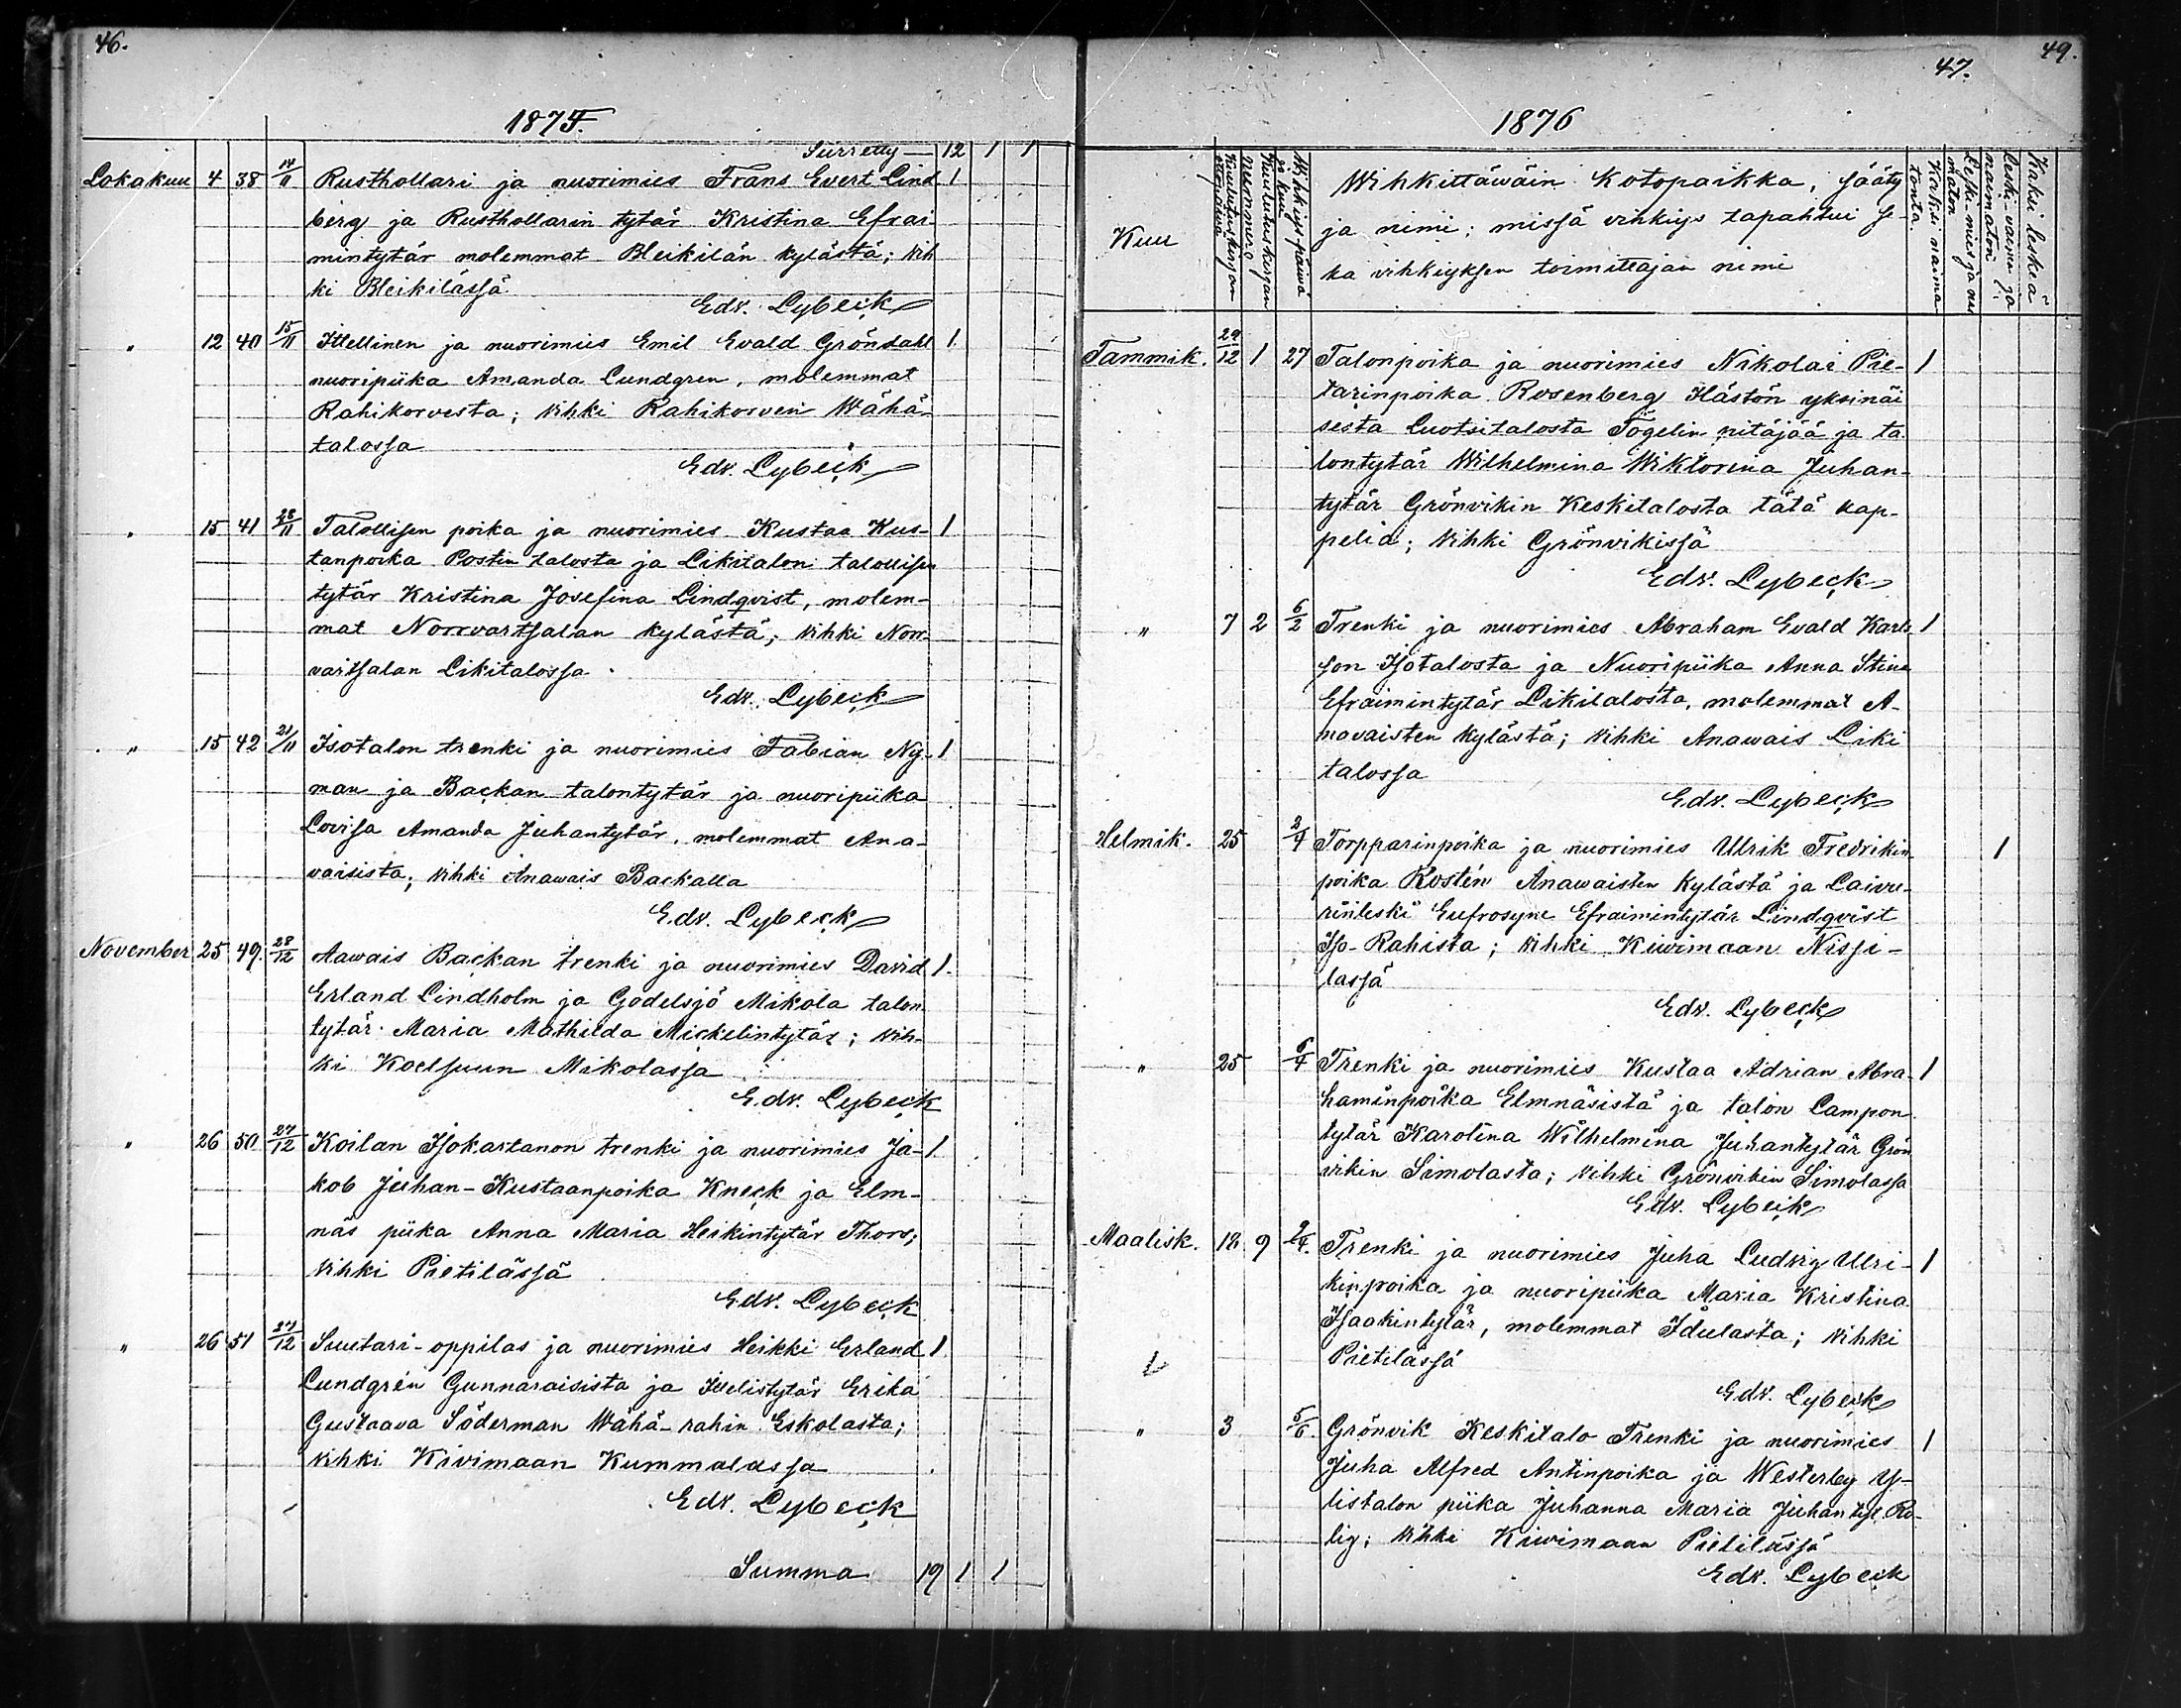 46.
1875.
Siirretty — 12 1 1
Lokakuu 4 38 14/11 Rusthollari ja nuorimies Frans Evert Lind 1
berg ja Rusthollarin tytär Kristina Efrai
mintytär molemmat Bleikilän kylästä; vih
ki Bleikilässä
Edv. Lybeck
" 12 40 15/11 Itellinen ja nuorimies Emil Evald Gröndahl 1
nuoripiika Amanda Lundgren, molemmat
Rahikorvesta; vihki Rahikorven Wähä-
talossa
Edv. Lybeck
" 15 41 23/11 Talollisen poika ja nuorimies Kustaa Kus- 1
tanpoika Postin talosta ja Likitalon talollisen
tytär Kristina Josefina Lindqvist, molem-
mat Norrvartsalan kylästä; vihki Norr-
vartsalan Likitalossa
Edv. Lybeck
" 15 42 21/11 Isotalon trenki ja nuorimies Fabian Ny- 1
man ja Backan talontytär ja nuoripiika
Lovisa Amanda Juhantytär, molemmat Ana-
vaisista; vihki Anawais Backalla
Edv. Lybeck
November 25 49 28/12 Aawais Backan trenki ja nuorimies David 1
Erland Lindholm ja Godelsjö Mikola talon
tytär Maria Mathilda Mickelintytär; vih-
ki Koelsuun Mikolassa
Edv. Lybeck
" 26 50 27/12 Koilan Isokartanon trenki ja nuorimies Ja- 1
kob Juhan-Kustaanpoika Kneck ja Elm-
näs piika Anna Maria Heikintytär Thors;
vihki Pietilässä
Edv. Lybeck
" 26 51 27/12 Suutari-oppilas ja nuorimies Heikki Erland 1
Lundgrén Gunnaraisista ja Itelistytär Erika
Gustaava Söderman Wähä-rahin Eskolasta;
vihki Kivimaan Kummalassa
Edv. Lybeck
Summa 19 1 1
49.
47.
1876
Kuu
Kuulutuskirjan
Kuulutuskirjan
Nummero
Wihkiys-päiwä
ja kuu
Wihkittäwäin Kotopaikka, sääty
ja nimi; missä vihkiys tapahtui se-
ka vihkiyksen toimittajan nimi
Kaksi naima
tonta.
Leski mies ja nai
maton
Leski vaimo ja
naimaton
Kaksi leskeä
Tammik. 29/12 1 27 Talonpoika ja nuorimies Nikolai Pie- 1
tarinpoika Rosenberg Hästön yksinäi
sesta Luotsitalosta Tögelin pitäjää ja ta
lontytär Wilhelmina Wiktorina Juhan-
tytär Grönvikin Keskitalosta tätä kap-
pelia; vihki Grönvikissä
Edv. Lybeck
" 7 2 6/2 Trenki ja nuorimies Abraham Evald Karls 1
son Isotalosta ja Nuoripiika Anna Stina
Efraimintytär Likitalosta, molemmat A-
navaisten kylästä; vihki Anawais Liki
talossa
Edv. Lybeck
Helmik. 25 2/4 Torpparinpoika ja nuorimies Ulrik Fredrikin 1
poika Rostén Anawaisten kylästä ja Laivu-
rinleski Eufrosyne Efraimintytär Lindqvist
Iso-Rahista; vihki Kiwimaan Nissi-
lassä
Edv. Lybeck
" 25 6/4 Trenki ja nuorimies Kustaa Adrian Abra- 1
haminpoika Elmnäsistä ja talon Lampon
tytär Karolina Wilhelmina Juhantytär Grön
vikin Simolasta; vihki Grönvikin Simolassa
Edv. Lybeck
Maalisk. 12 9 2/4. Trenki ja nuorimies Juha Ludvig Ulri- 1
kinpoika ja nuoripiika Maria Kristina
Isaakintytär, molemmat Idulasta; vihki
Pietilässä
Edv. Lybeck
" 3 5/6. Grönvik Keskitalo Trenki ja nuorimies 1
Juha Alfred Antinpoika ja Westerby Y-
listalon piika Juhanna Maria Juhantyt. Ro-
lig; vihki Kiwimaan Pietilässä
Edv. Lybeck